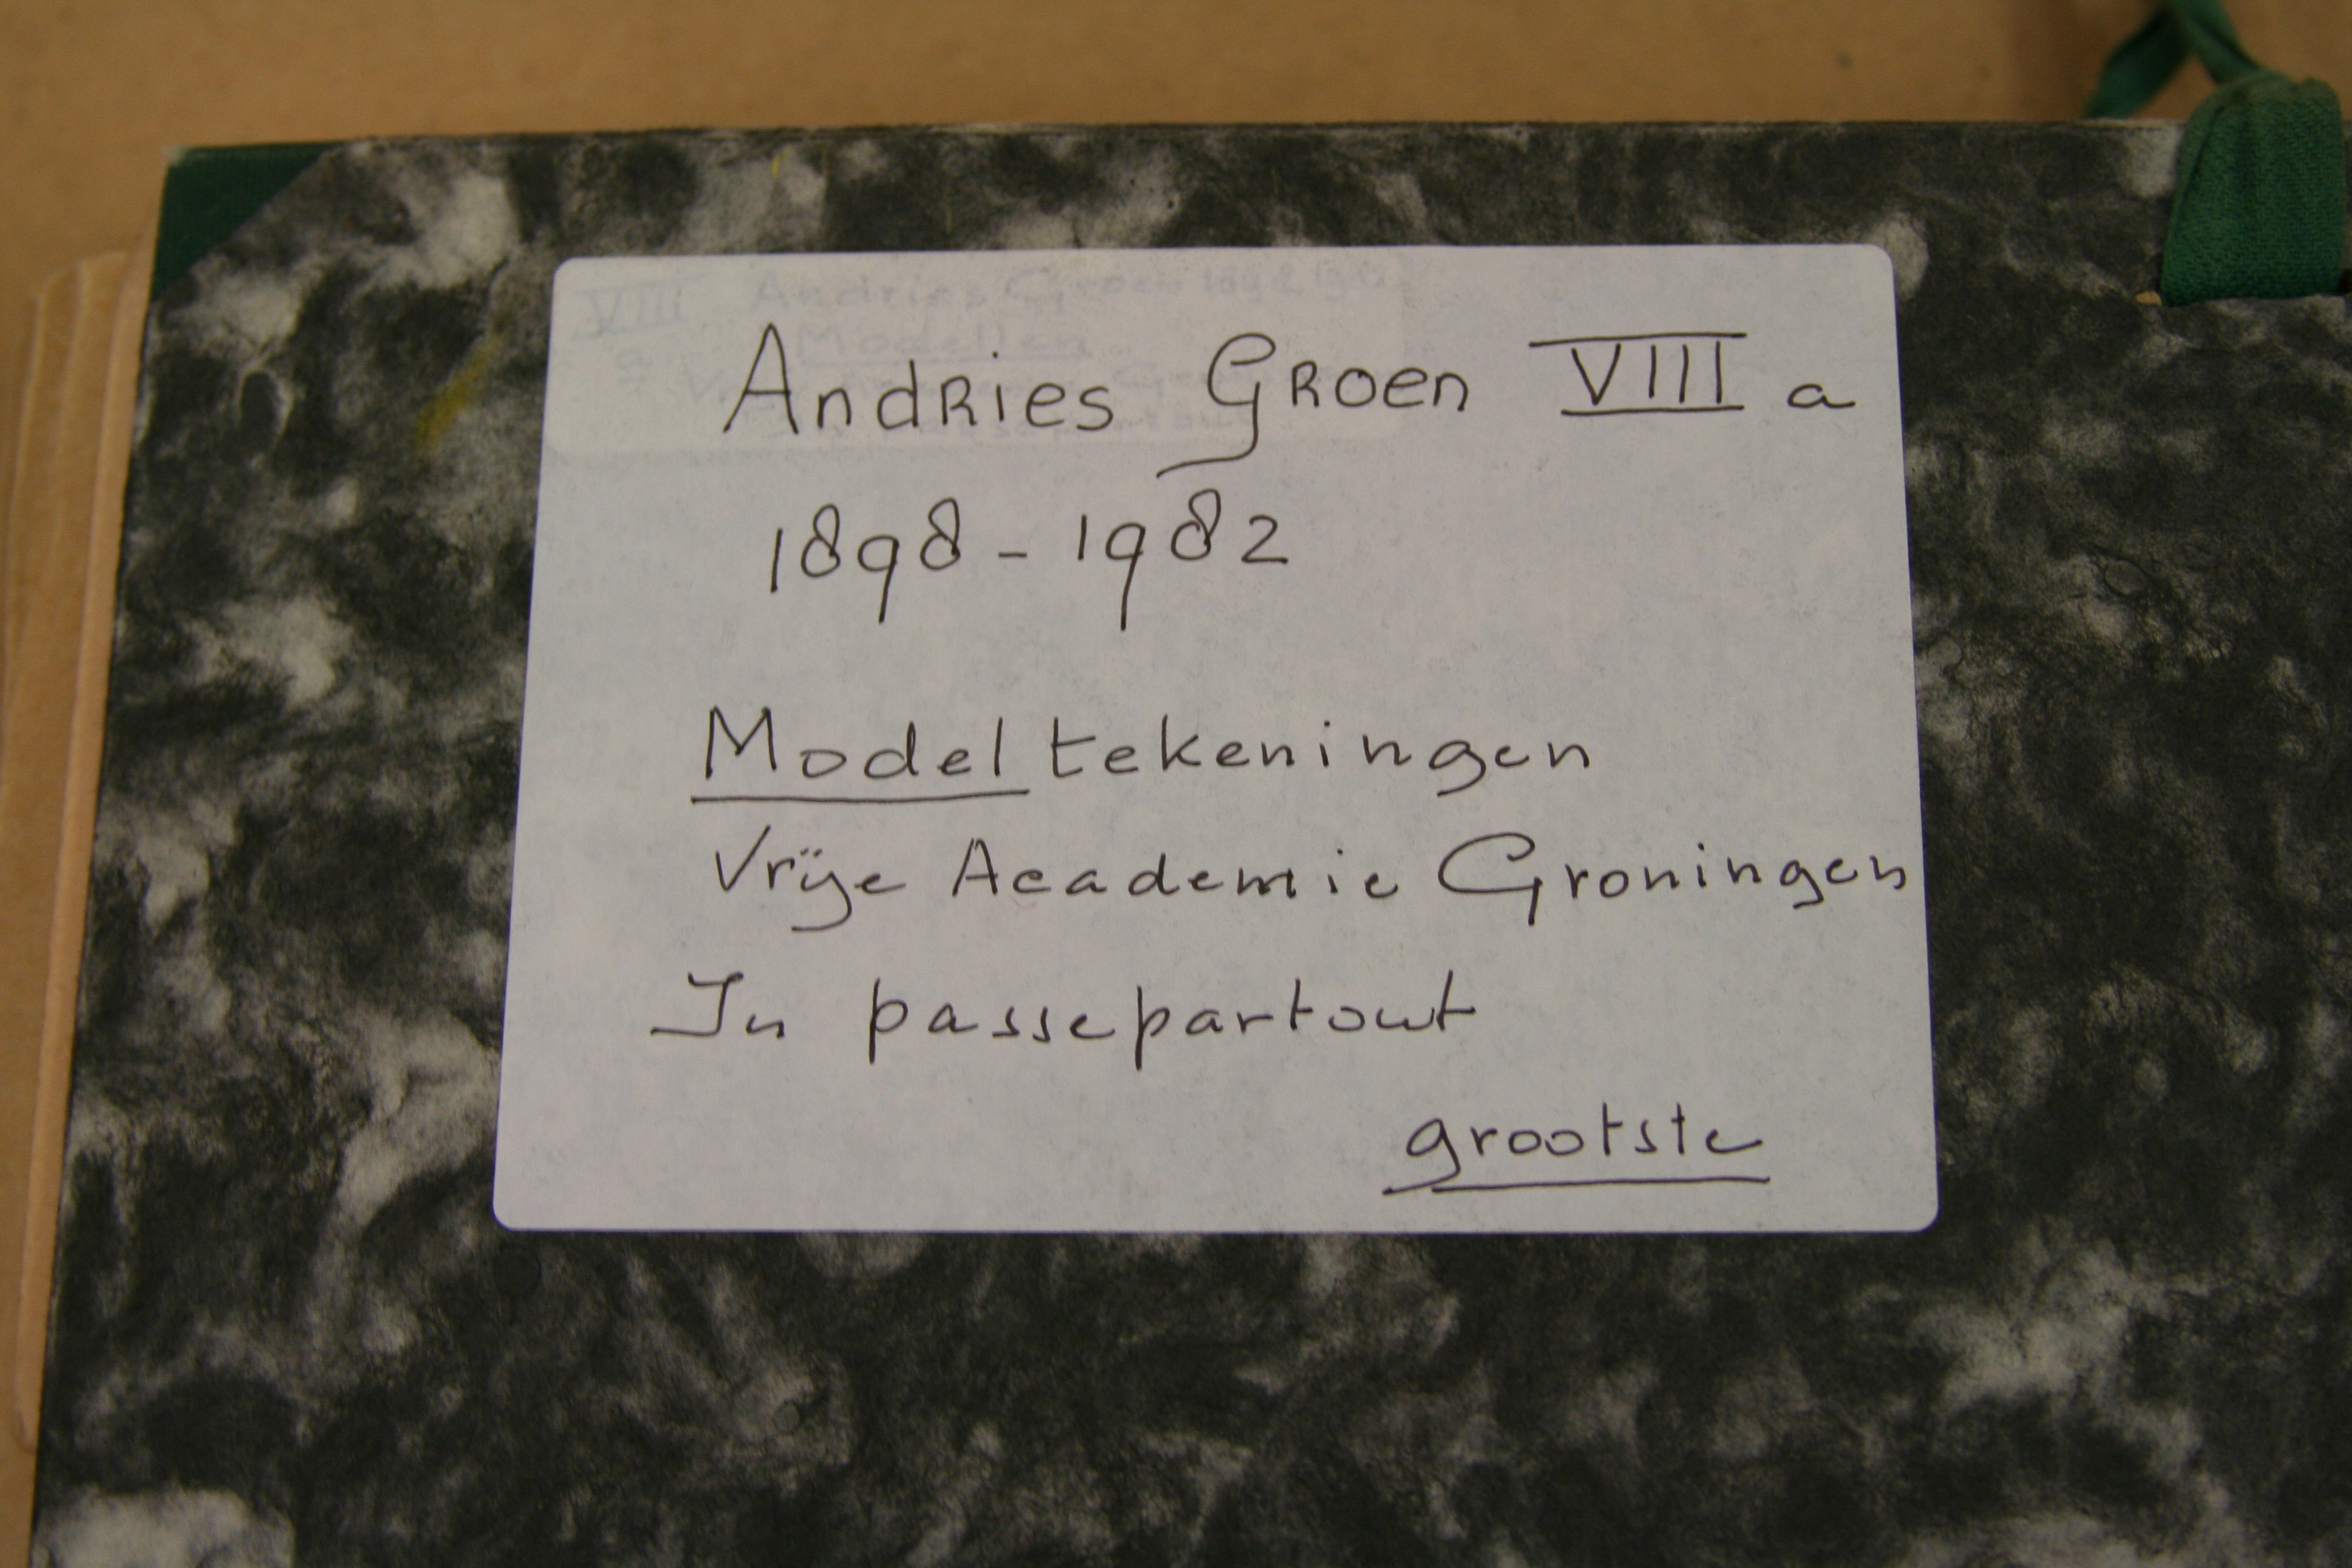 Andries Groen VIII a
1898 - 1982
Model tekeningen
Vrije Academie Groningen
In passepartout
grootste